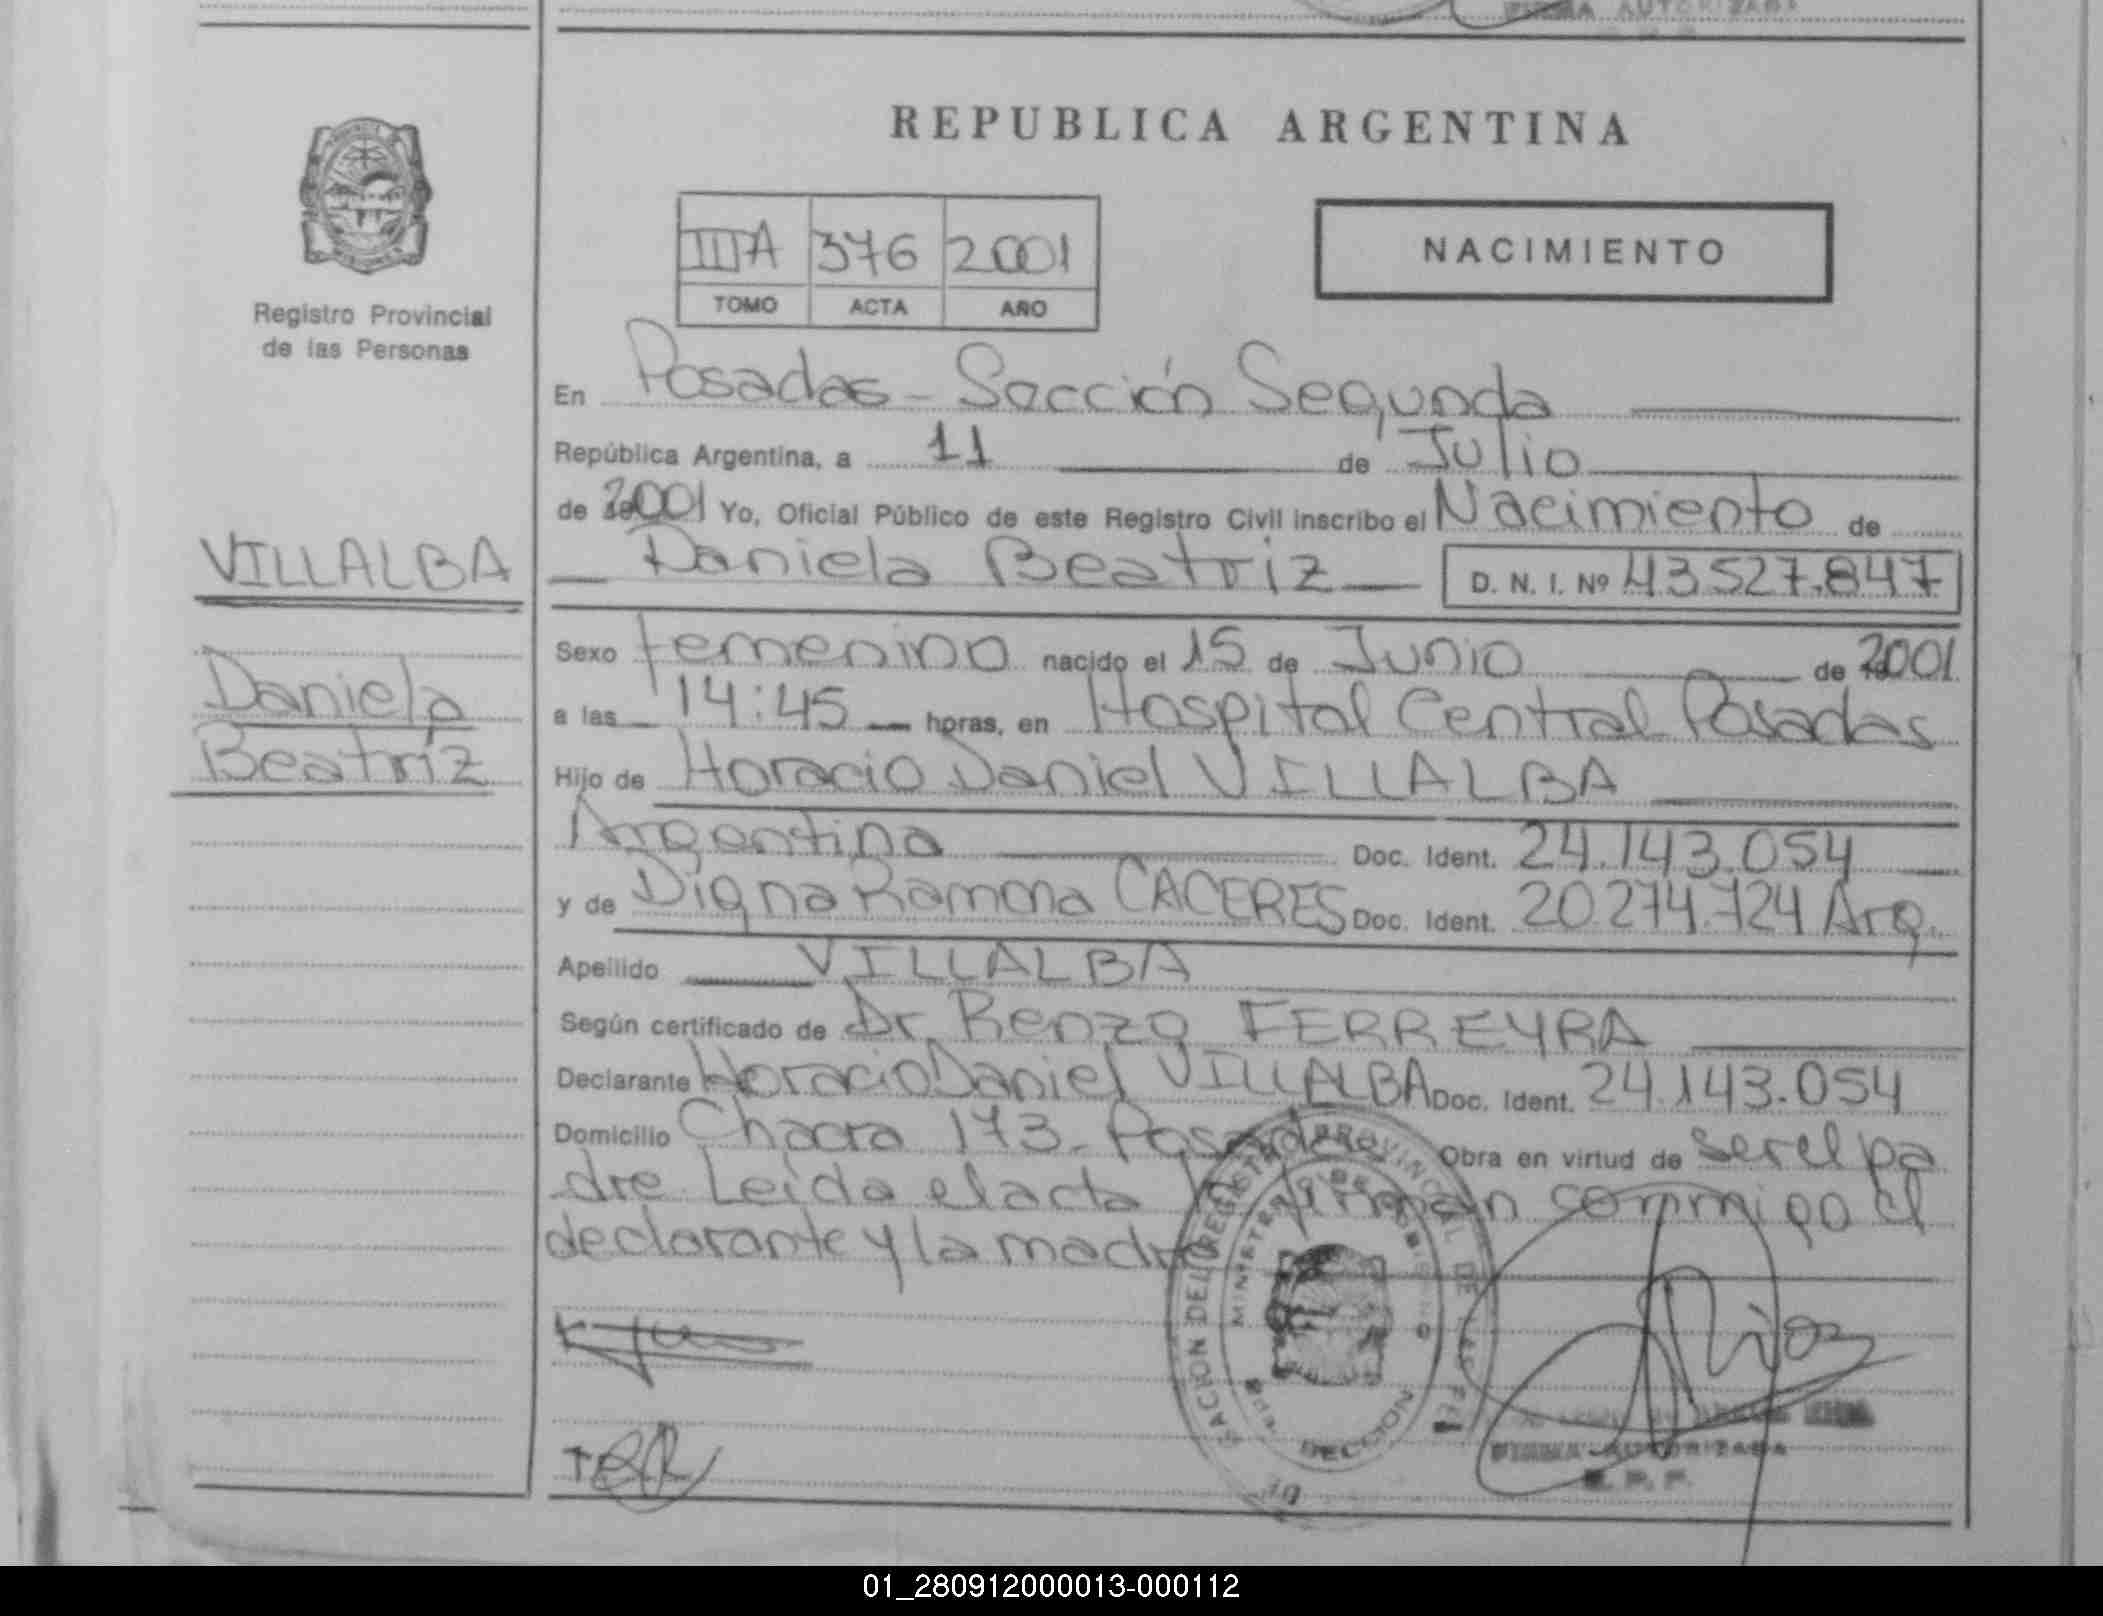 FIRMA AUTORIZADA
REPUBLICA ARGENTINA
Registro Provincial
de las Personas
IIIA 376 2001
TOMO ACTA AÑO
NACIMIENTO
En Posadas - Sección Segunda
República Argentina, a 11 de Julio
de 2001 Yo, Oficial Público de este Registro Civil inscribo el Nacimiento de
Daniela Beatriz D. N. I. Nº 43.527.847
VILLALBA
Daniela
Beatriz
Sexo femenino nacido el 15 de Junio de 2001
a las 14:45 horas, en Hospital Central Posadas
Hijo de Horacio Daniel VILLALBA
Argentina Doc. Ident. 24.143.054
y de Digna Ramona CACERES Doc. Ident. 20.274.724 Arg.
Apellido VILLALBA
Según certificado de Dr Renzo FERREYRA
Declarante Horacio Daniel VILLALBA Doc. Ident. 24.143.054
Domicilio Chacra 173 - Posadas Obra en virtud de ser el pa
dre Leída el acta la firman conmigo el
declarante y la madre
FIRMA AUTORIZADA
R. P. P.
01_280912000013-000112